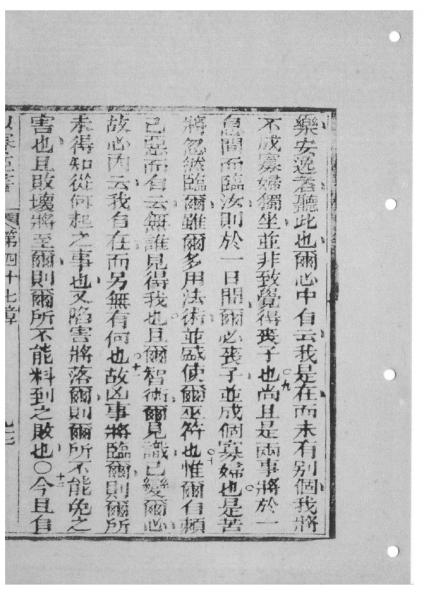 樂安逸者聽此也爾心中自云我是在而未有別個我將
不成寡婦獨坐並非致覺得喪子也○九尚且是兩事將於一
息間而臨汝則於一日間爾必喪子並成個寡婦也是苦
將忽然臨爾雖爾多用法術並盛使爾巫符也○十惟爾自賴
己惡而自云無誰見得我也且爾智術爾見識已變爾心
故心内云我自在而另無有何也○十一故凶事將臨爾則爾所
未得知從何起之事也又陷害將落爾則爾所不能免之
害也且敗壞將至爾則爾所不能料到之敗也○十二今且自
第四十七章